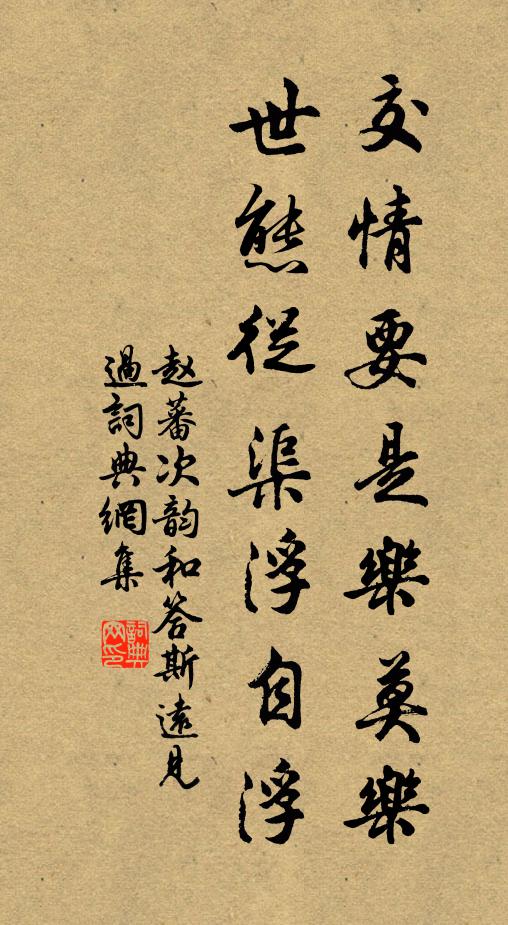 交情要是樂莫樂
世態從渠浮自浮
赵蕃次韵和答斯遠見
過詞典網集
詞典
网印